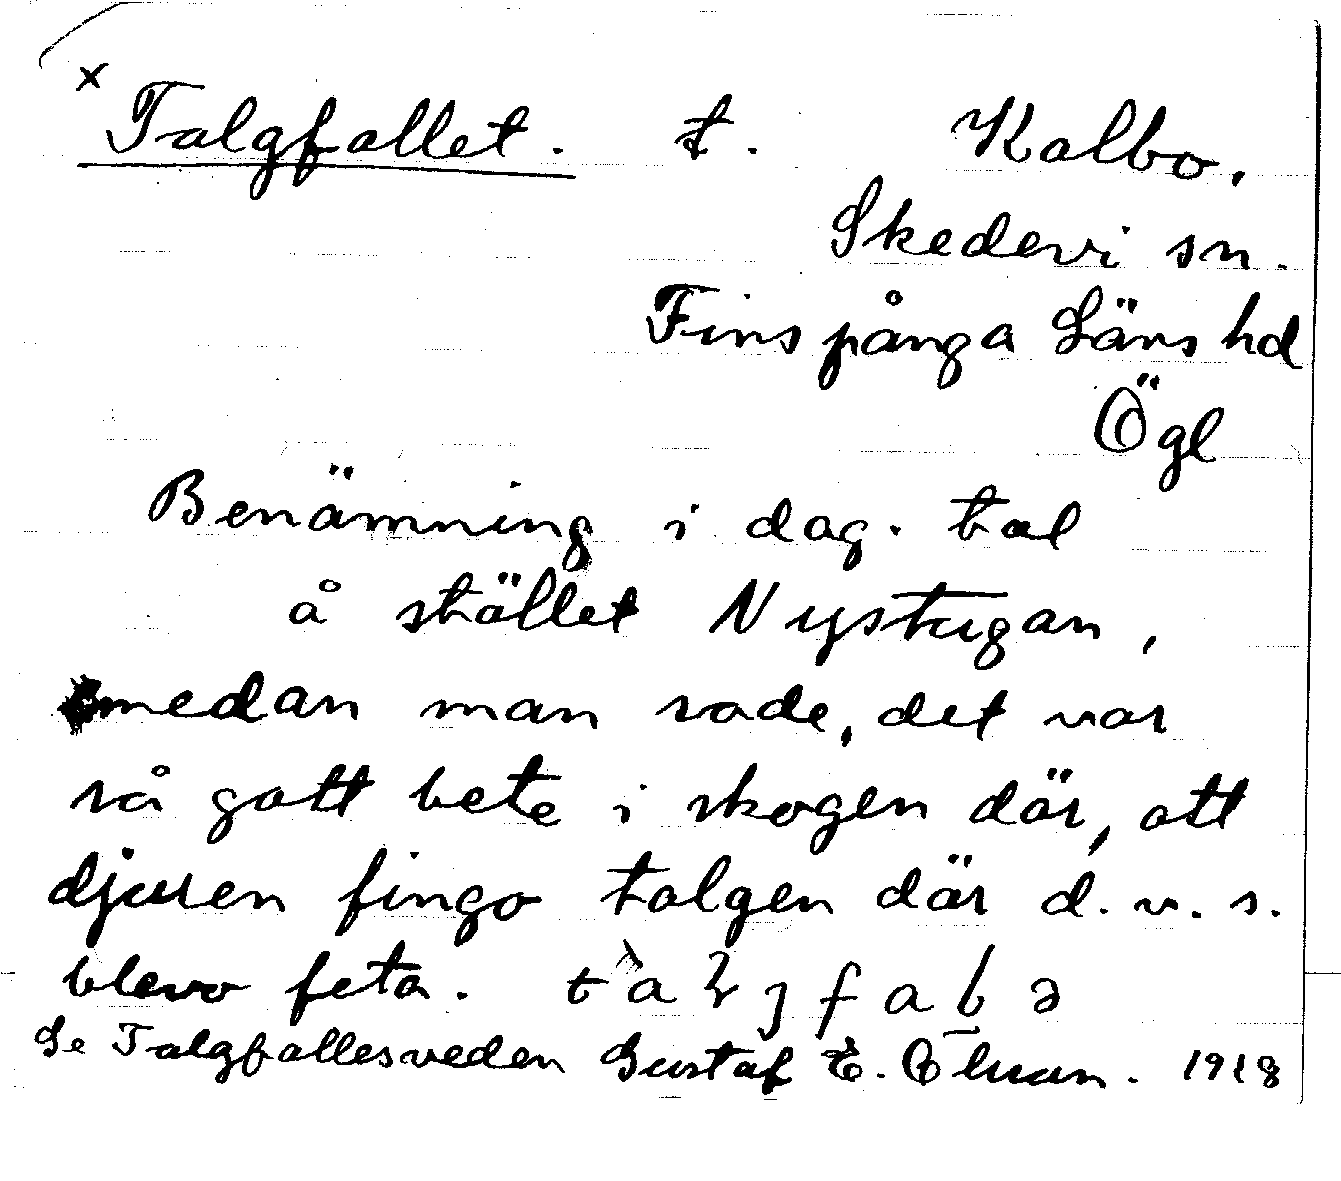 x Talgfallet. t. Kalbo,
Skedevi sn.
Finspånga Läns hd
Ögl
Benämning i dag. tal
å stället Nystugan,
medan man sade, det var
så gott bete i skogen där, att
djuren fingo talgen där d. v. s.
blevo feta.
Se Talgfallesveden Gustaf E. 1918